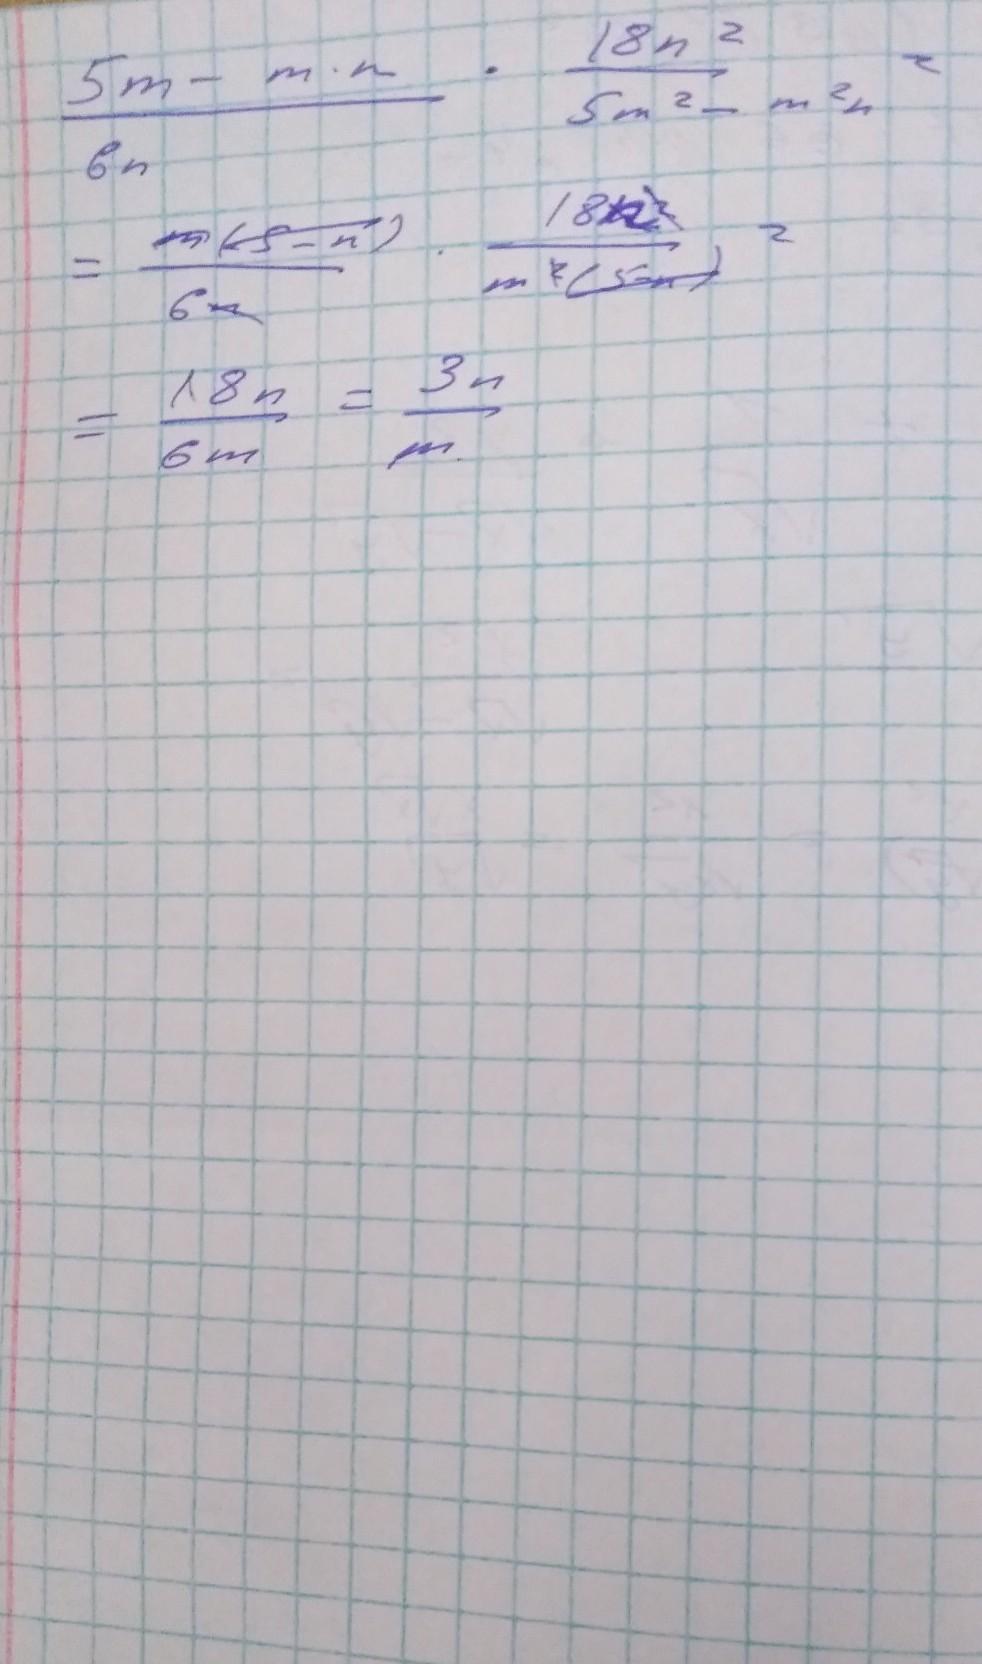 (5m - m·n)/6n · 18n²/(5m² - m²n) =
= m(5-n)/6n · 18n²/m²(5-n) =
= 18n/6m = 3n/m